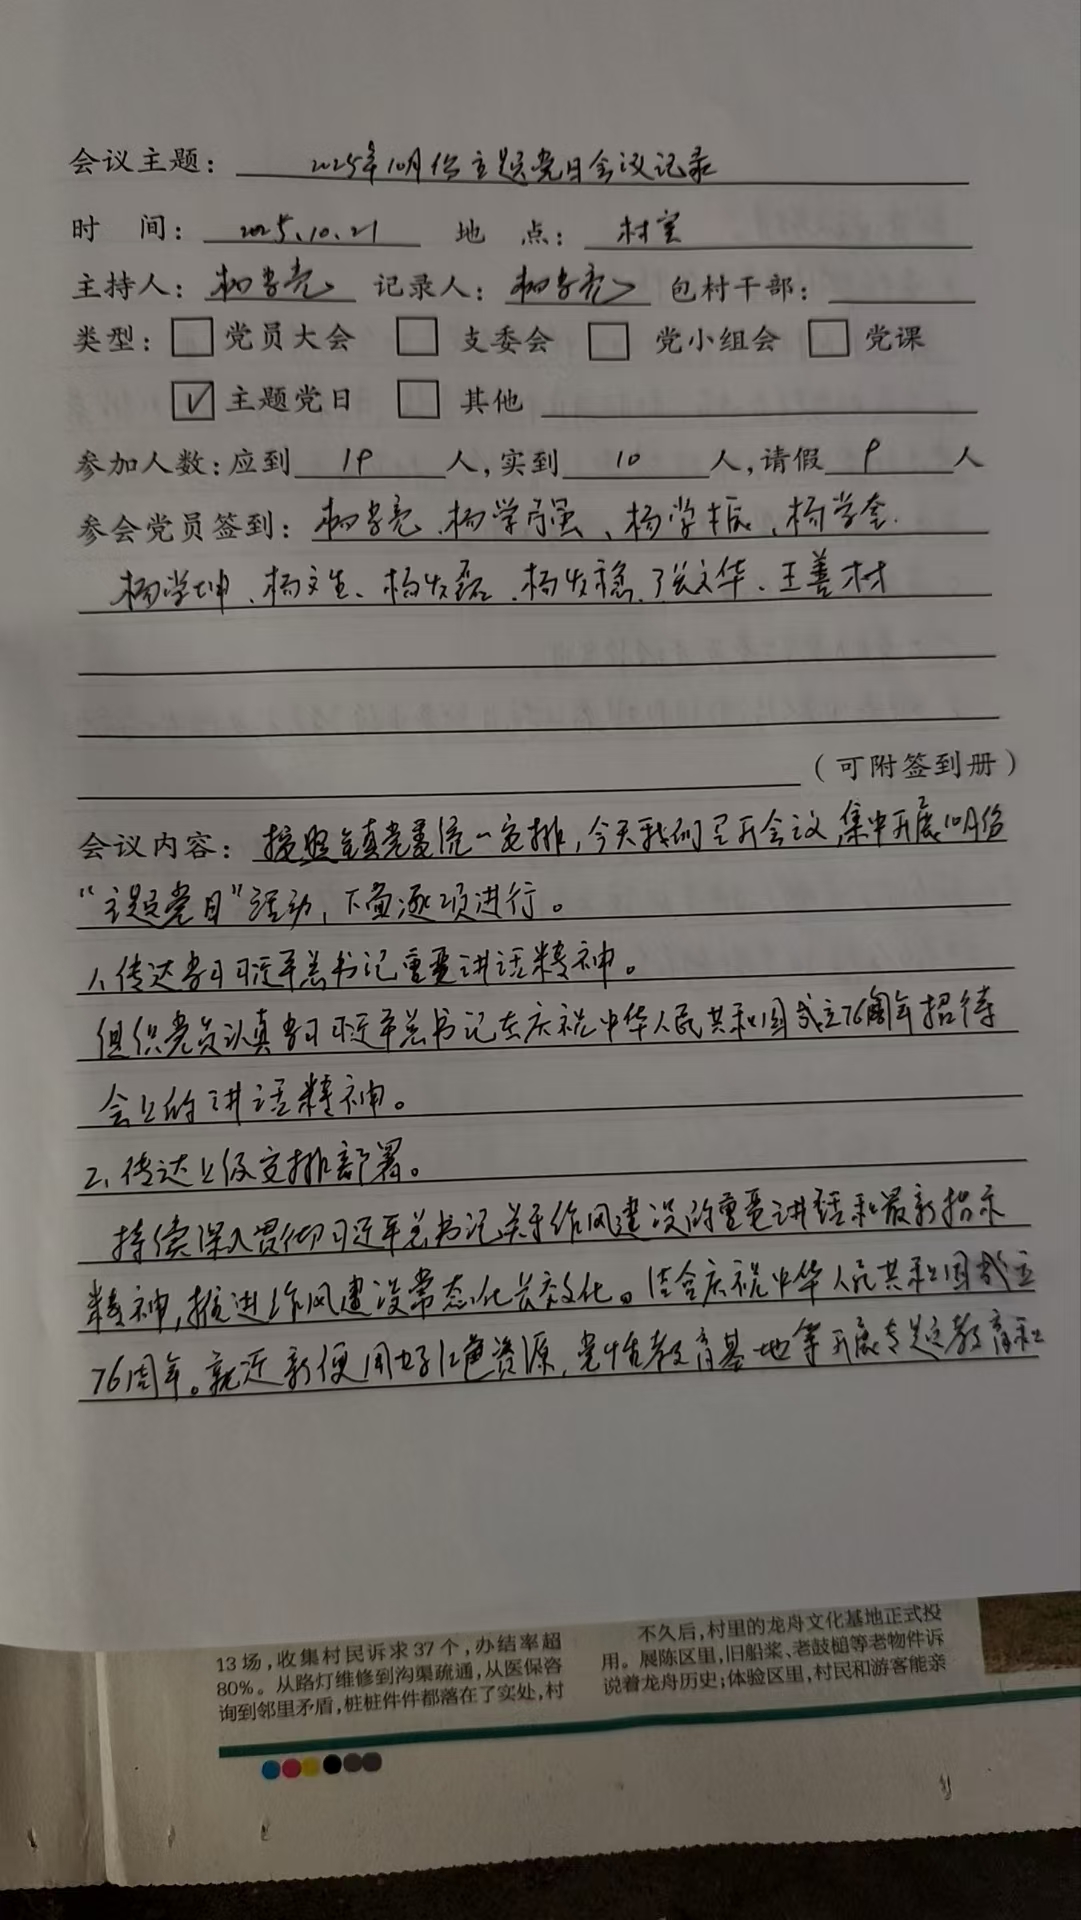 会议主题：2025年10月份主题党日会议记录
时 间：2025.10.21 地 点：村室
主持人：杨学亮 记录人：杨学亮 包村干部：
类型：□党员大会 □支委会 □党小组会 □党课
☑主题党日 □其他
参加人数：应到19人，实到10人，请假9人
参会党员签到：杨学亮、杨学强、杨学振、杨学奎、
杨学坤、杨文生、杨发磊、杨发稳、张文华、王善村
（可附签到册）
会议内容：按照镇党委统一安排，今天我们召开会议，集中开展10月份
“主题党日”活动，下面逐项进行。
1、传达学习习近平总书记重要讲话精神。
组织党员认真学习习近平总书记在庆祝中华人民共和国成立76周年招待
会上的讲话精神。
2、传达上级安排部署。
持续深入贯彻习近平总书记关于作风建设的重要讲话和最新指示
精神，推进作风建设常态化长效化。结合庆祝中华人民共和国成立
76周年。就近就便用好红色资源，党性教育基地等开展专题教育和
13场，收集村民诉求37个，办结率超
80%。从路灯维修到沟渠疏通，从医保咨
询到邻里矛盾，桩桩件件都落在了实处，村
不久后，村里的龙舟文化基地正式投
用。展陈区里，旧船桨、老鼓槌等老物件诉
说着龙舟历史；体验区里，村民和游客能亲